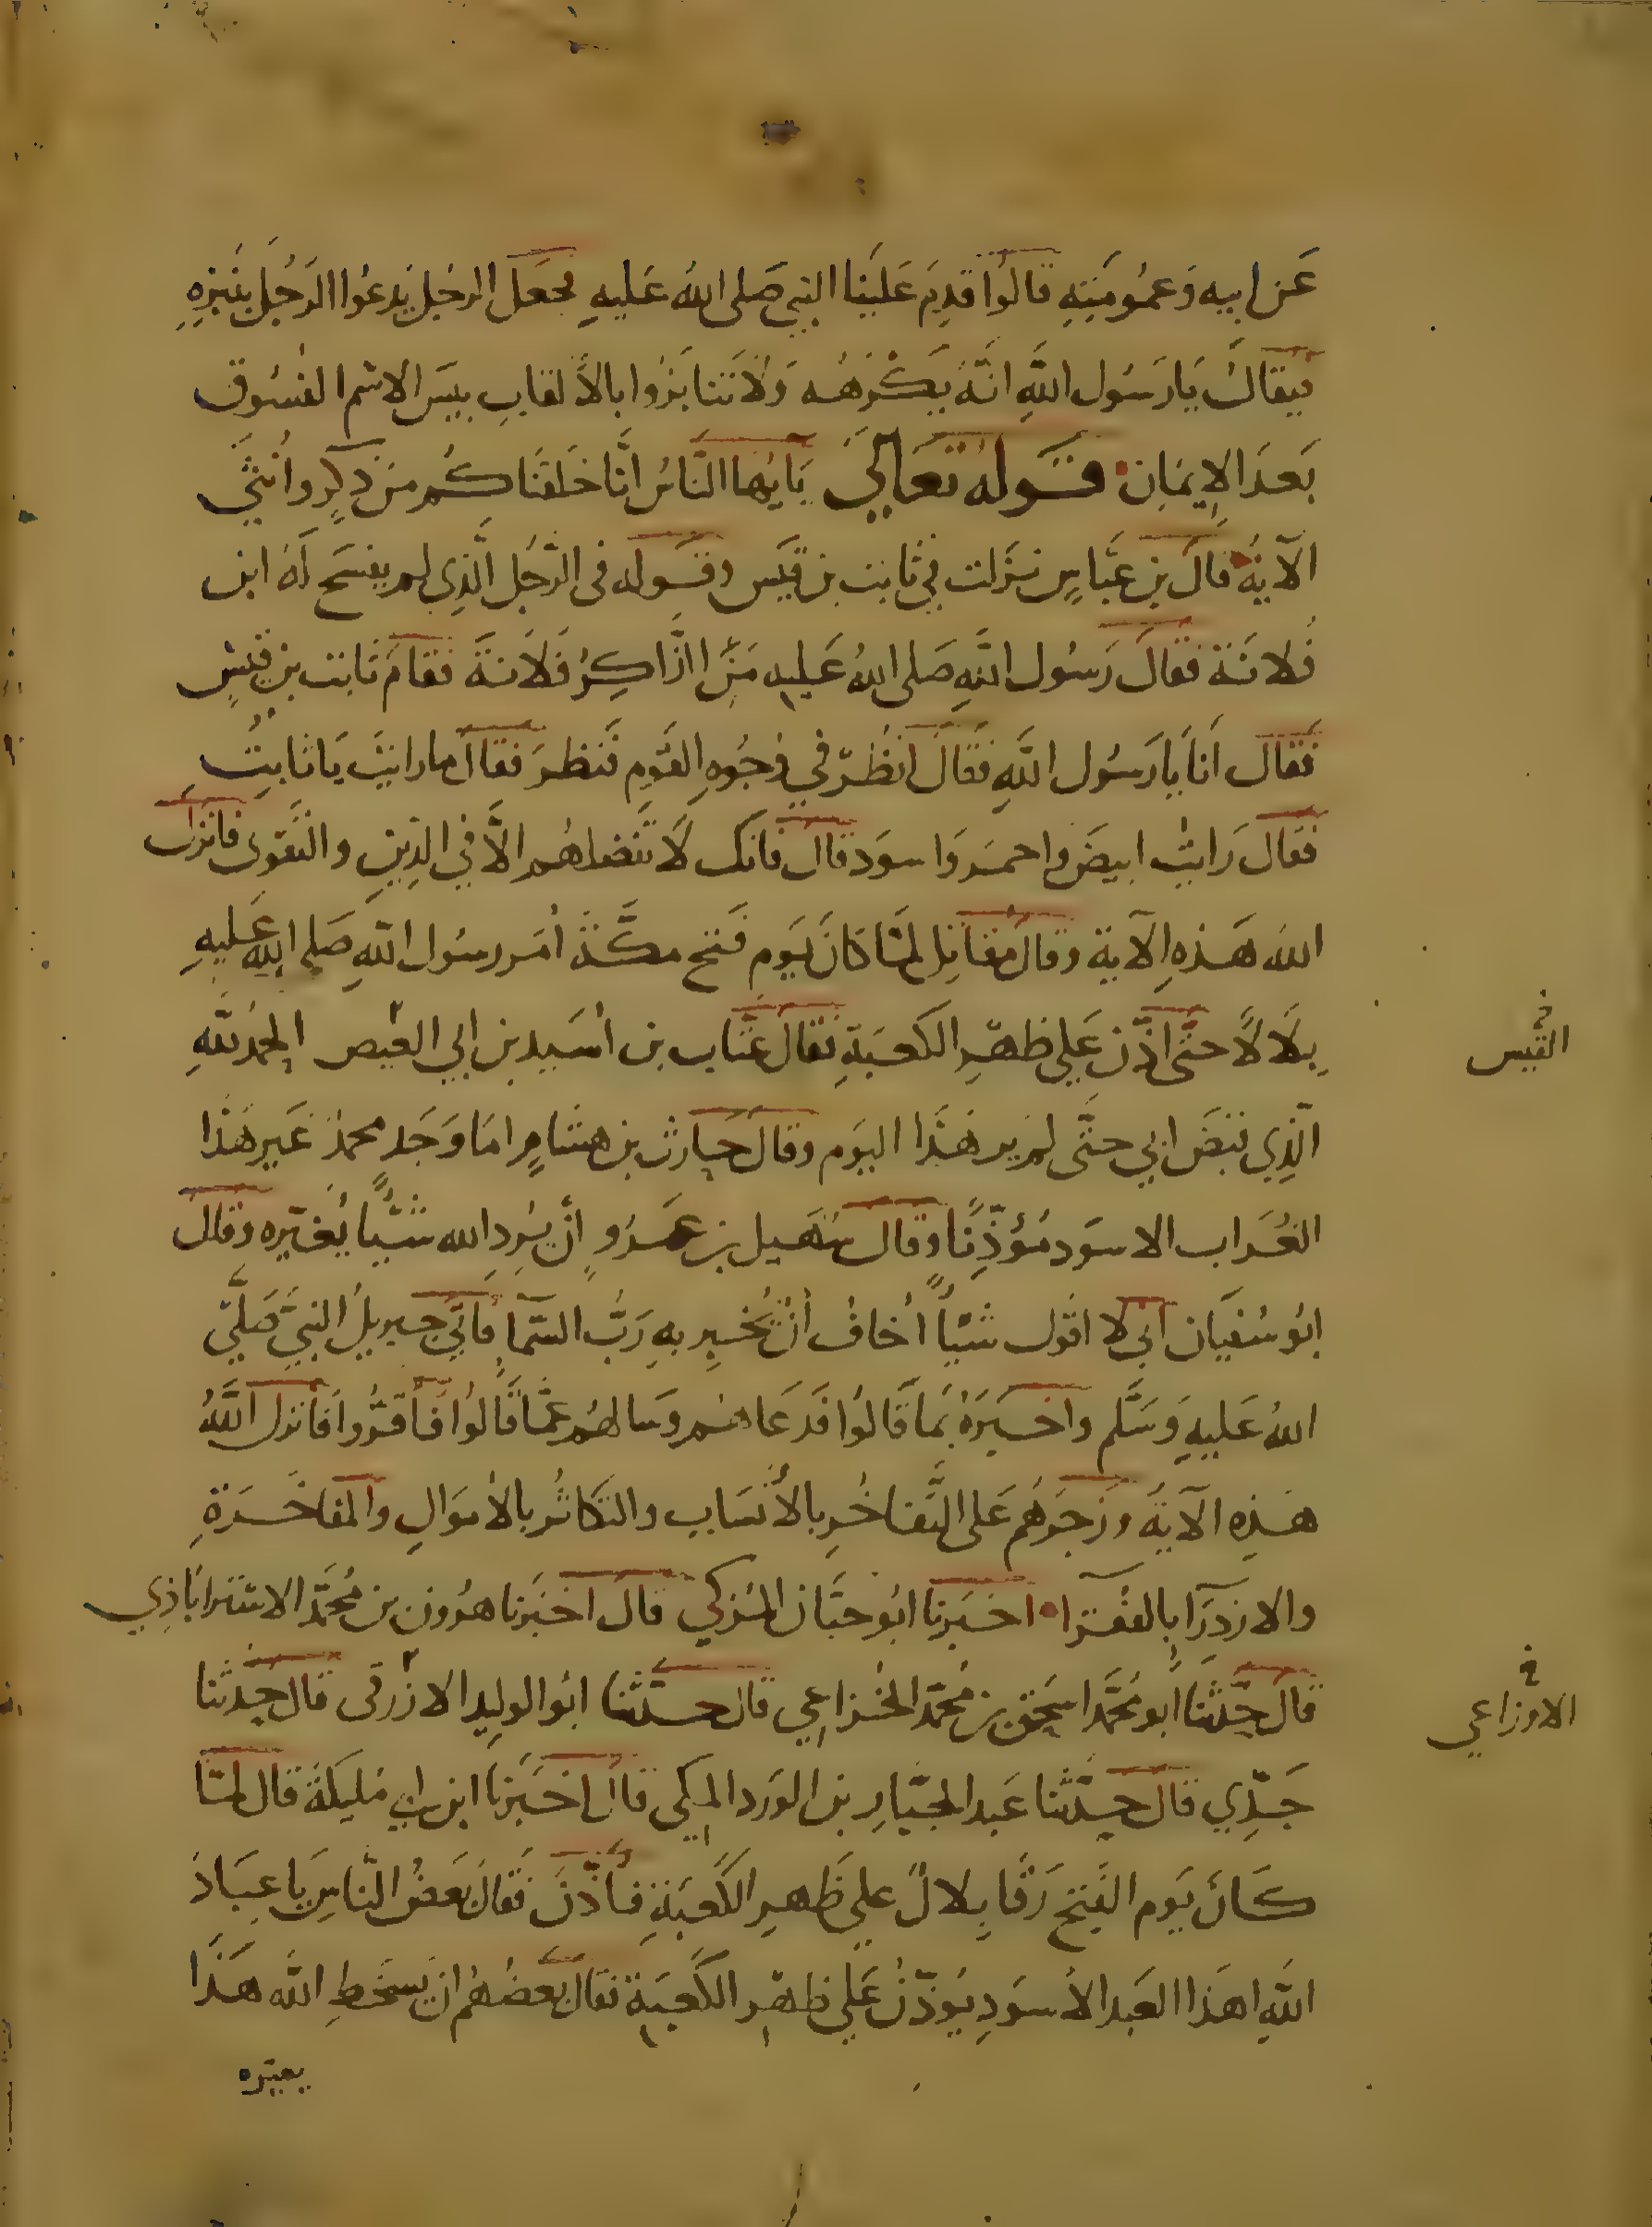 عَن ابيه وَعمُومَتِهِ قالوُا قدِمَ عَلَينا النبي صَلى اللهُ عَليهِ فجعَل الرجُل يَدعُوا الرَجُل بِنَبزِهِ
فيقالُ يَا رَسُول اللَّهِ انَّهُ يَكْرَهُه وَلاَ تَنابَزُوا بالأَلقابِ بيسَ الاسم الفُسُوق
بَعدَ الإِيمَانِ قَولهُ تعَالَي يَآيهُا النَّاسُ انَّا خَلَقنَا كُم من ذكرٍ وانُثَي
الآيةُ قالَ بن عَبَّاسٍ نزَلت في ثابت بن قيَس وقَوله في الرَّجُل الَّذِي لم يفسَح لَهُ ابن
فُلانَة فقَالَ رَسُول اللَّهِ صَلى اللهُ عَليه مَنِ الذَّاكِرُ فُلاَنةَ فقامَ ثابت بن قيسٍ
فَقال اَنا يا رَسُول اللَّهِ فقَالَ انظُر في وُجُوهِ القَومِ فَنَظرَ فقالَ ما رايتَ يَا ثابِتُ
فقالَ رَايتُ ابيضَ واحمرَ وَاسوَد قالَ فانكَ لاَ تَفضلهُم الاَّ في الدِينِ والتَّقوى فانزل
اللهُ هَذهِ الآية وقالَ مقاتِل لمَّا كانَ يَوم فَتح مكَّةَ امَر رسُول اللهِ صَلى اللهُ عَليهِ
بِلاَلاً حتَّى اذّن عَلي ظهرِ الكعبَةِ فقالَ عتَّاب بن اُسَيد بن ابي العيص الحمدُ للَّهِ
الَّذِي قبَضَ ابي حتَّى لم يرَ هَذَا اليَوم وقالَ حارث بن هشامٍ امَا وَجَد محمدٌ غَير هَذَا
الغُرَاب الاسوَد مُؤذِّنًا وقالَ سُهَيل بن عَمرٍو اِنْ يُرِدِ الله شَيْئًا يُغيّره وقال
ابُو سُفيَان اني لا اقُول شَيْئًا اُخافُ انْ يُخبِر بهِ رَبُّ السَّمآءِ فاتَي جبريلُ النبيَّ صَلَّي
اللهُ عَليهِ وَسَلَّم واخبَرَهُ بمَا قَالوُا فَدعَاهُم وسَالهُم عَمَّا قَالوُا فَأقرُّوا فَانزل اللَّهُ
هَذِهِ الآيةُ وزَجَرهُم عَلى التَّفاخُرِ بالأَنسَابِ والتكاثُر بالاموَالِ والمفاخَرَةِ
والازدِرَآ بِالفُقَرآءِ اخبَرنا ابُو حَسَّان المُزكي قالَ اخبَرنا هرُون بن مُحمَّد الاستراباذِي
قالَ حَدَّثنا اَبو مُحمَّد اسحَق بن مُحَمّد الخُزاعِي قالَ حَدّثنا ابُو الولِيد الازرقى قالَ حَدثنا
جَدِّي قالَ حدَّثنا عَبد الجبّارِ بن الورد المكي قالَ اخبَرنا ابن ابي مُليكَةَ قالَ لمّا
كَانَ يَوم الفَتح رَقا بِلالٌ علي ظَهرِ الكَعبَةِ فَأذَّنَ فقَالَ بَعضُ النَّاسِ يَا عِبَادَ
اللَّهِ اهَذا العَبد الأسوَدِ يُوَذّنُ عَلي ظهرِ الكَعبَةِ فقالَ بَعضُهُم ان يسخَطِ اللَّه هَذَا
يغيّره
القيس
الاوزاعي